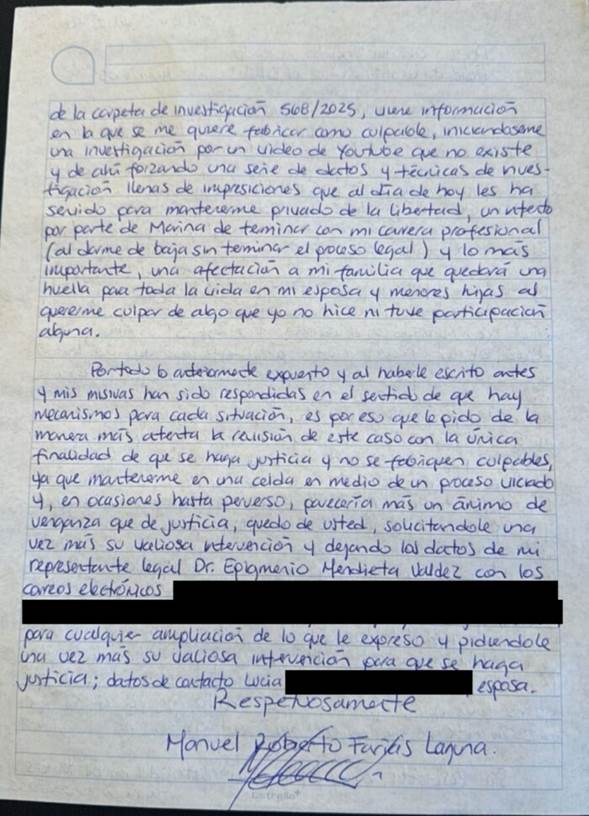 de la carpeta de investigación 568/2025, viene información
en la que se me quiere fabricar como culpable, iniciandoseme
una investigación por un video de Youtube que no existe
y de ahí forzando una serie de datos y técnicas de inves-
tigación llenas de impresiciones que al día de hoy les ha
servido para mantenerme privado de la libertad, un intento
por parte de Marina de terminar con mi carrera profesional
(al darme de baja sin terminar el proceso legal) y lo más
importante, una afectación a mi familia que quedará una
huella para toda la vida en mi esposa y menores hijas al
quererme culpar de algo que yo no hice ni tuve participación
alguna.
Por todo lo anteriormente expuesto y al haberle escrito antes
y mis misivas han sido respondidas en el sentido de que hay
mecanismos para cada situación, es por eso que le pido de la
manera más atenta la revisión de este caso con la única
finalidad de que se haga justicia y no se fabriquen culpables,
ya que mantenerme en una celda en medio de un proceso viciado
y, en ocasiones hasta perverso, parecería más un ánimo de
venganza que de justicia, quedo de usted, solicitandole una
vez más su valiosa intervención y dejando los datos de mi
representante legal Dr. Epigmenio Mendieta Valdez con los
correos electrónicos
para cualquier ampliación de lo que le expreso y pidiendole
una vez más su valiosa intervención para que se haga
justicia; datos de contacto Lucia esposa.
Respetuosamente
Manuel Roberto Farías Laguna.